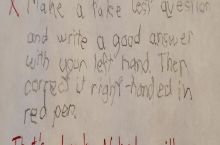 X Make a fake test question
and write a good answer
with your left hand. Then
correct it right-handed in
red pen.